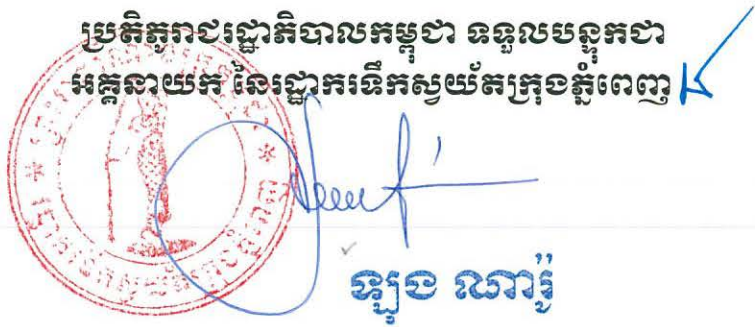 ប្រតិភូរាជរដ្ឋាភិបាលកម្ពុជា ទទួលបន្ទុកជា
អគ្គនាយក នៃរដ្ឋាករទឹកស្វយ័តក្រុងភ្នំពេញ
ឡុង ណារ៉ូ